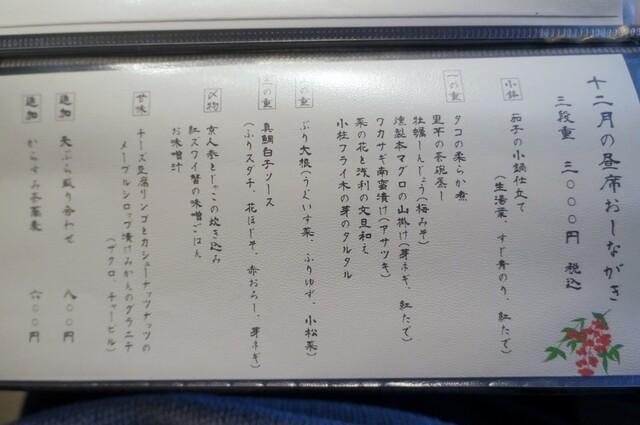 十二月の昼席おしながき
三段重 三〇〇〇円 税込
小鉢
茄子の小鍋仕立て
(生湯葉、すじ青のり、紅たで)
一の重
タコの柔らか煮
里芋の茶碗蒸し
牡蠣しんじょう(梅みそ)
燻製本マグロの山掛け(芽ネギ、紅たで)
ワカサギ南蛮漬け(アサツキ)
菜の花と浅利の文旦和え
小柱フライ木の芽のタルタル
二の重
ぶり大根(うぐいす菜、ふりゆず、小松菜)
三の重
真鯛白子ソース
(ふりスダチ、花ほじそ、赤おろし、芽ネギ)
〆物
京人参とじゃこの炊き込み
紅ズワイ蟹の味噌ごはん
お味噌汁
甘味
チーズ豆腐リンゴとカシューナッツナッツの
メープルシロップ漬けみかんのグラニテ
(ザクロ、チャービル)
追加 天ぷら盛り合わせ 八〇〇円
追加 からすみ茶蕎麦 六〇〇円